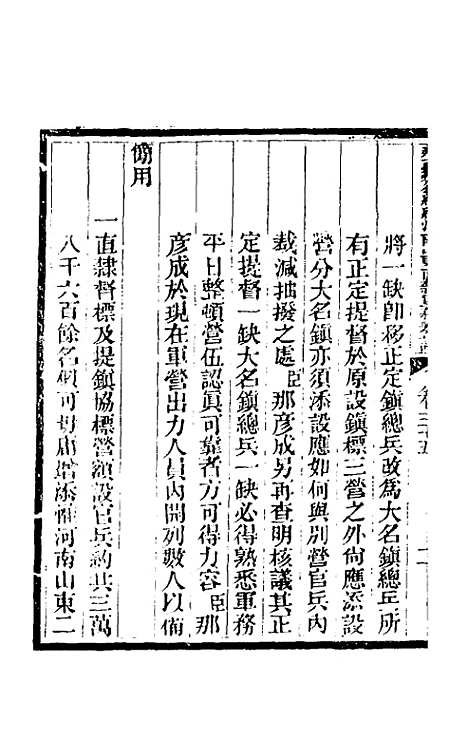 卷三十五
將一缺卽移正定鎮總兵改爲大名鎮總兵所
有正定提督於原設鎮標三營之外尙應添設
營分大名鎮亦須添設應如何與別營官兵內
裁減抽撥之處臣那彥成另再查明核議其正
定提督一缺大名鎮總兵一缺必得熟悉軍務
平日整頓營伍認眞可靠者方可得力容臣那
彥成於現在軍營出力人員內開列數人以備
簡用
一直隸督標及提鎮協標營額設官兵約共三萬
八千六百餘名頗可毋庸增添惟河南山東二